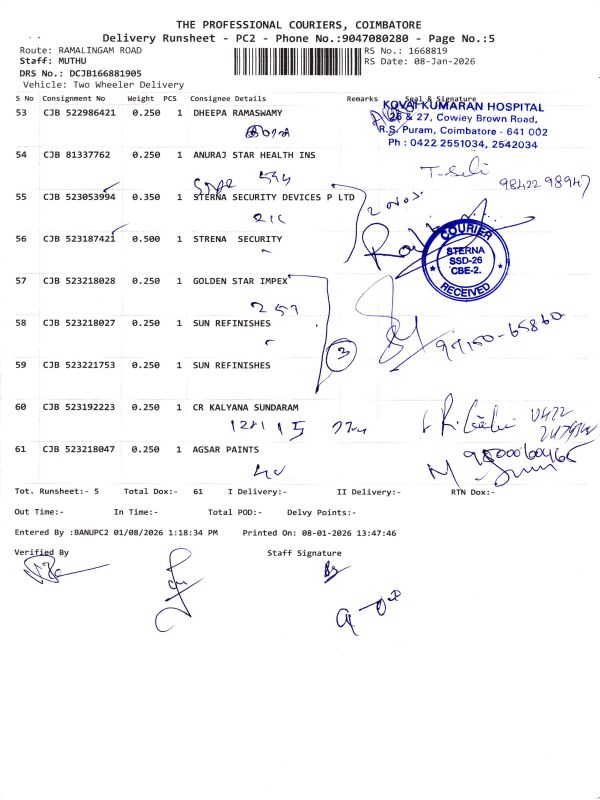 THE PROFESSIONAL COURIERS, COIMBATORE
Delivery Runsheet - PC2 - Phone No.:9047080280 - Page No.:5
Route: RAMALINGAM ROAD
RS No.: 1668819
Staff: MUTHU
RS Date: 08-Jan-2026
DRS No.: DCJB166881905
Vehicle: Two Wheeler Delivery
S No Consignment No Weight PCS Consignee Details Remarks Seal & Signature
53 CJB 522986421 0.250 1 DHEEPA RAMASWAMY
KOVAI KUMARAN HOSPITAL
26 & 27, Cowley Brown Road,
R.S. Puram, Coimbatore - 641 002
Ph : 0422 2551034, 2542034
54 CJB 81337762 0.250 1 ANURAJ STAR HEALTH INS
98422 98947
55 CJB 523053994 0.350 1 STERNA SECURITY DEVICES P LTD
56 CJB 523187421 0.500 1 STRENA SECURITY
COURIER
STERNA
SSD-26
CBE-2.
RECEIVED
57 CJB 523218028 0.250 1 GOLDEN STAR IMPEX
58 CJB 523218027 0.250 1 SUN REFINISHES
97150-65860
3
59 CJB 523221753 0.250 1 SUN REFINISHES
60 CJB 523192223 0.250 1 CR KALYANA SUNDARAM
61 CJB 523218047 0.250 1 AGSAR PAINTS
Tot. Runsheet:- 5 Total Dox:- 61 I Delivery:- II Delivery:- RTN Dox:-
Out Time:- In Time:- Total POD:- Delvy Points:-
Entered By :BANUPC2 01/08/2026 1:18:34 PM Printed On: 08-01-2026 13:47:46
Verified By Staff Signature